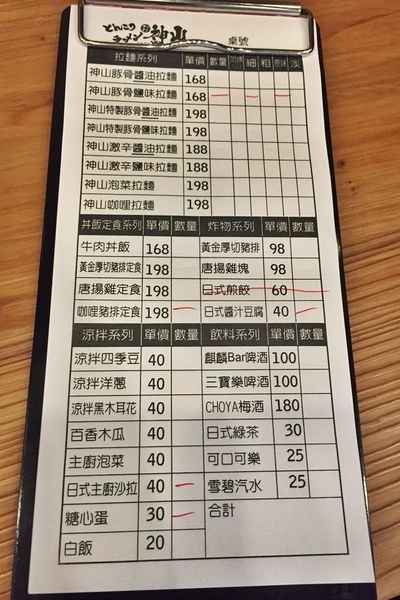 とんこつ
ラーメン 神山 桌號
拉麵系列 單價 數量 細 粗 淡
神山豚骨醬油拉麵 168
神山豚骨鹽味拉麵 168
神山特製豚骨醬油拉麵 198
神山特製豚骨鹽味拉麵 198
神山激辛醬油拉麵 188
神山激辛鹽味拉麵 188
神山泡菜拉麵 198
神山咖哩拉麵 198
丼飯定食系列 單價 數量 炸物系列 單價 數量
牛肉丼飯 168 黃金厚切豬排 98
黃金厚切豬排定食 198 唐揚雞塊 98
唐揚雞定食 198 日式煎餃 60
咖哩豬排定食 198 日式醬汁豆腐 40
涼拌系列 單價 數量 飲料系列 單價 數量
涼拌四季豆 40 麒麟Bar啤酒 100
涼拌洋蔥 40 三寶樂啤酒 100
涼拌黑木耳花 40 CHOYA梅酒 180
百香木瓜 40 日式綠茶 30
主廚泡菜 40 可口可樂 25
日式主廚沙拉 40 雪碧汽水 25
糖心蛋 30 合計
白飯 20